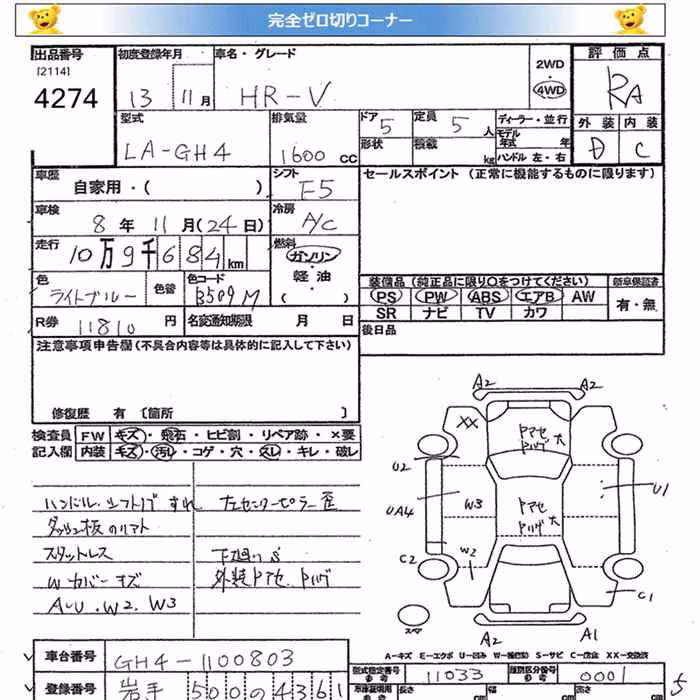 完全ゼロ切りコーナー
出品番号 初度登録年月 車名・グレード 2WD・4WD 評価点
[2114]
4274 13 11月 HR-V RA
型式 排気量 ドア 5 定員 5人 ディーラー・並行 外装 内装
LA-GH4 1600cc 形状 積載 kg モデル年式 年 ハンドル 左・右 D C
車歴 自家用・( ) シフト F5 セールスポイント (正常に機能するものに限ります)
車検 8年 11月(24日) 冷房 A/C
走行 10万9千684km 燃料 ガソリン・軽油 ( )
色 ライトブルー 色替 色コード B509M
装備品 (純正品に限り○をつけてください) 新車保証書
PS PW ABS エアB AW 有・無
SR ナビ TV カワ
R券 11810円 名変通知期限 月 日 後日品
注意事項申告欄(不具合内容等は具体的に記入して下さい)
修復歴 有 [箇所 ]
検査員 FW キズ・飛石・ヒビ割・リペア跡・×要
記入欄 内装 キズ・汚レ・コゲ・穴・スレ・キレ・破レ
ハンドル シフトノブ すれ 左センターピラー歪
ダッシュ板のリアト
スタットレス 下廻りS
Wカバーキズ 外装トアセ トバゲ
A〜U.W2.W3
A2 A2
XX トアセ トバゲ大
U2
UA4 W3 トアセ トバゲ大 U1
C2 W2
C1
スペア
A2 A1
A-キズ E-エクボ U-凹み W-補修跡 S-サビ C-腐食 XX-交換済
車台番号 GH4-1100803 型式指定番号 参考 11033 類別区分番号 参考 0001
登録番号 岩手 500 の 4361 車庫証明用 参考 長さ cm 幅 cm 高さ cm